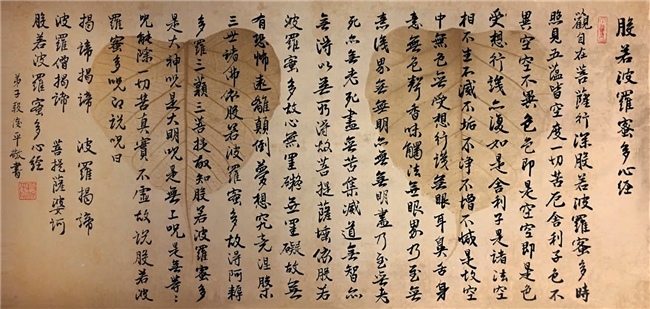 般若波羅蜜多心經
觀自在菩薩行深般若波羅蜜多時
照見五蘊皆空度一切苦厄舍利子色不
異空空不異色色即是空空即是色
受想行識亦復如是舍利子是諸法空
相不生不滅不垢不淨不增不減是故空
中無色無受想行識無眼耳鼻舌身
意無色聲香味觸法無眼界乃至無
意識界無無明亦無無明盡乃至無老
死亦無老死盡無苦集滅道無智亦
無得以無所得故菩提薩埵依般若
波羅蜜多故心無罣礙無罣礙故無
有恐怖遠離顛倒夢想究竟涅槃
三世諸佛依般若波羅蜜多故得阿耨
多羅三藐三菩提故知般若波羅蜜多
是大神咒是大明咒是無上咒是無等等
咒能除一切苦真實不虛故說般若波
羅蜜多咒即說咒曰
揭諦揭諦 波羅揭諦
波羅僧揭諦 菩提薩婆訶
般若波羅蜜多心經
弟子段俊平敬書